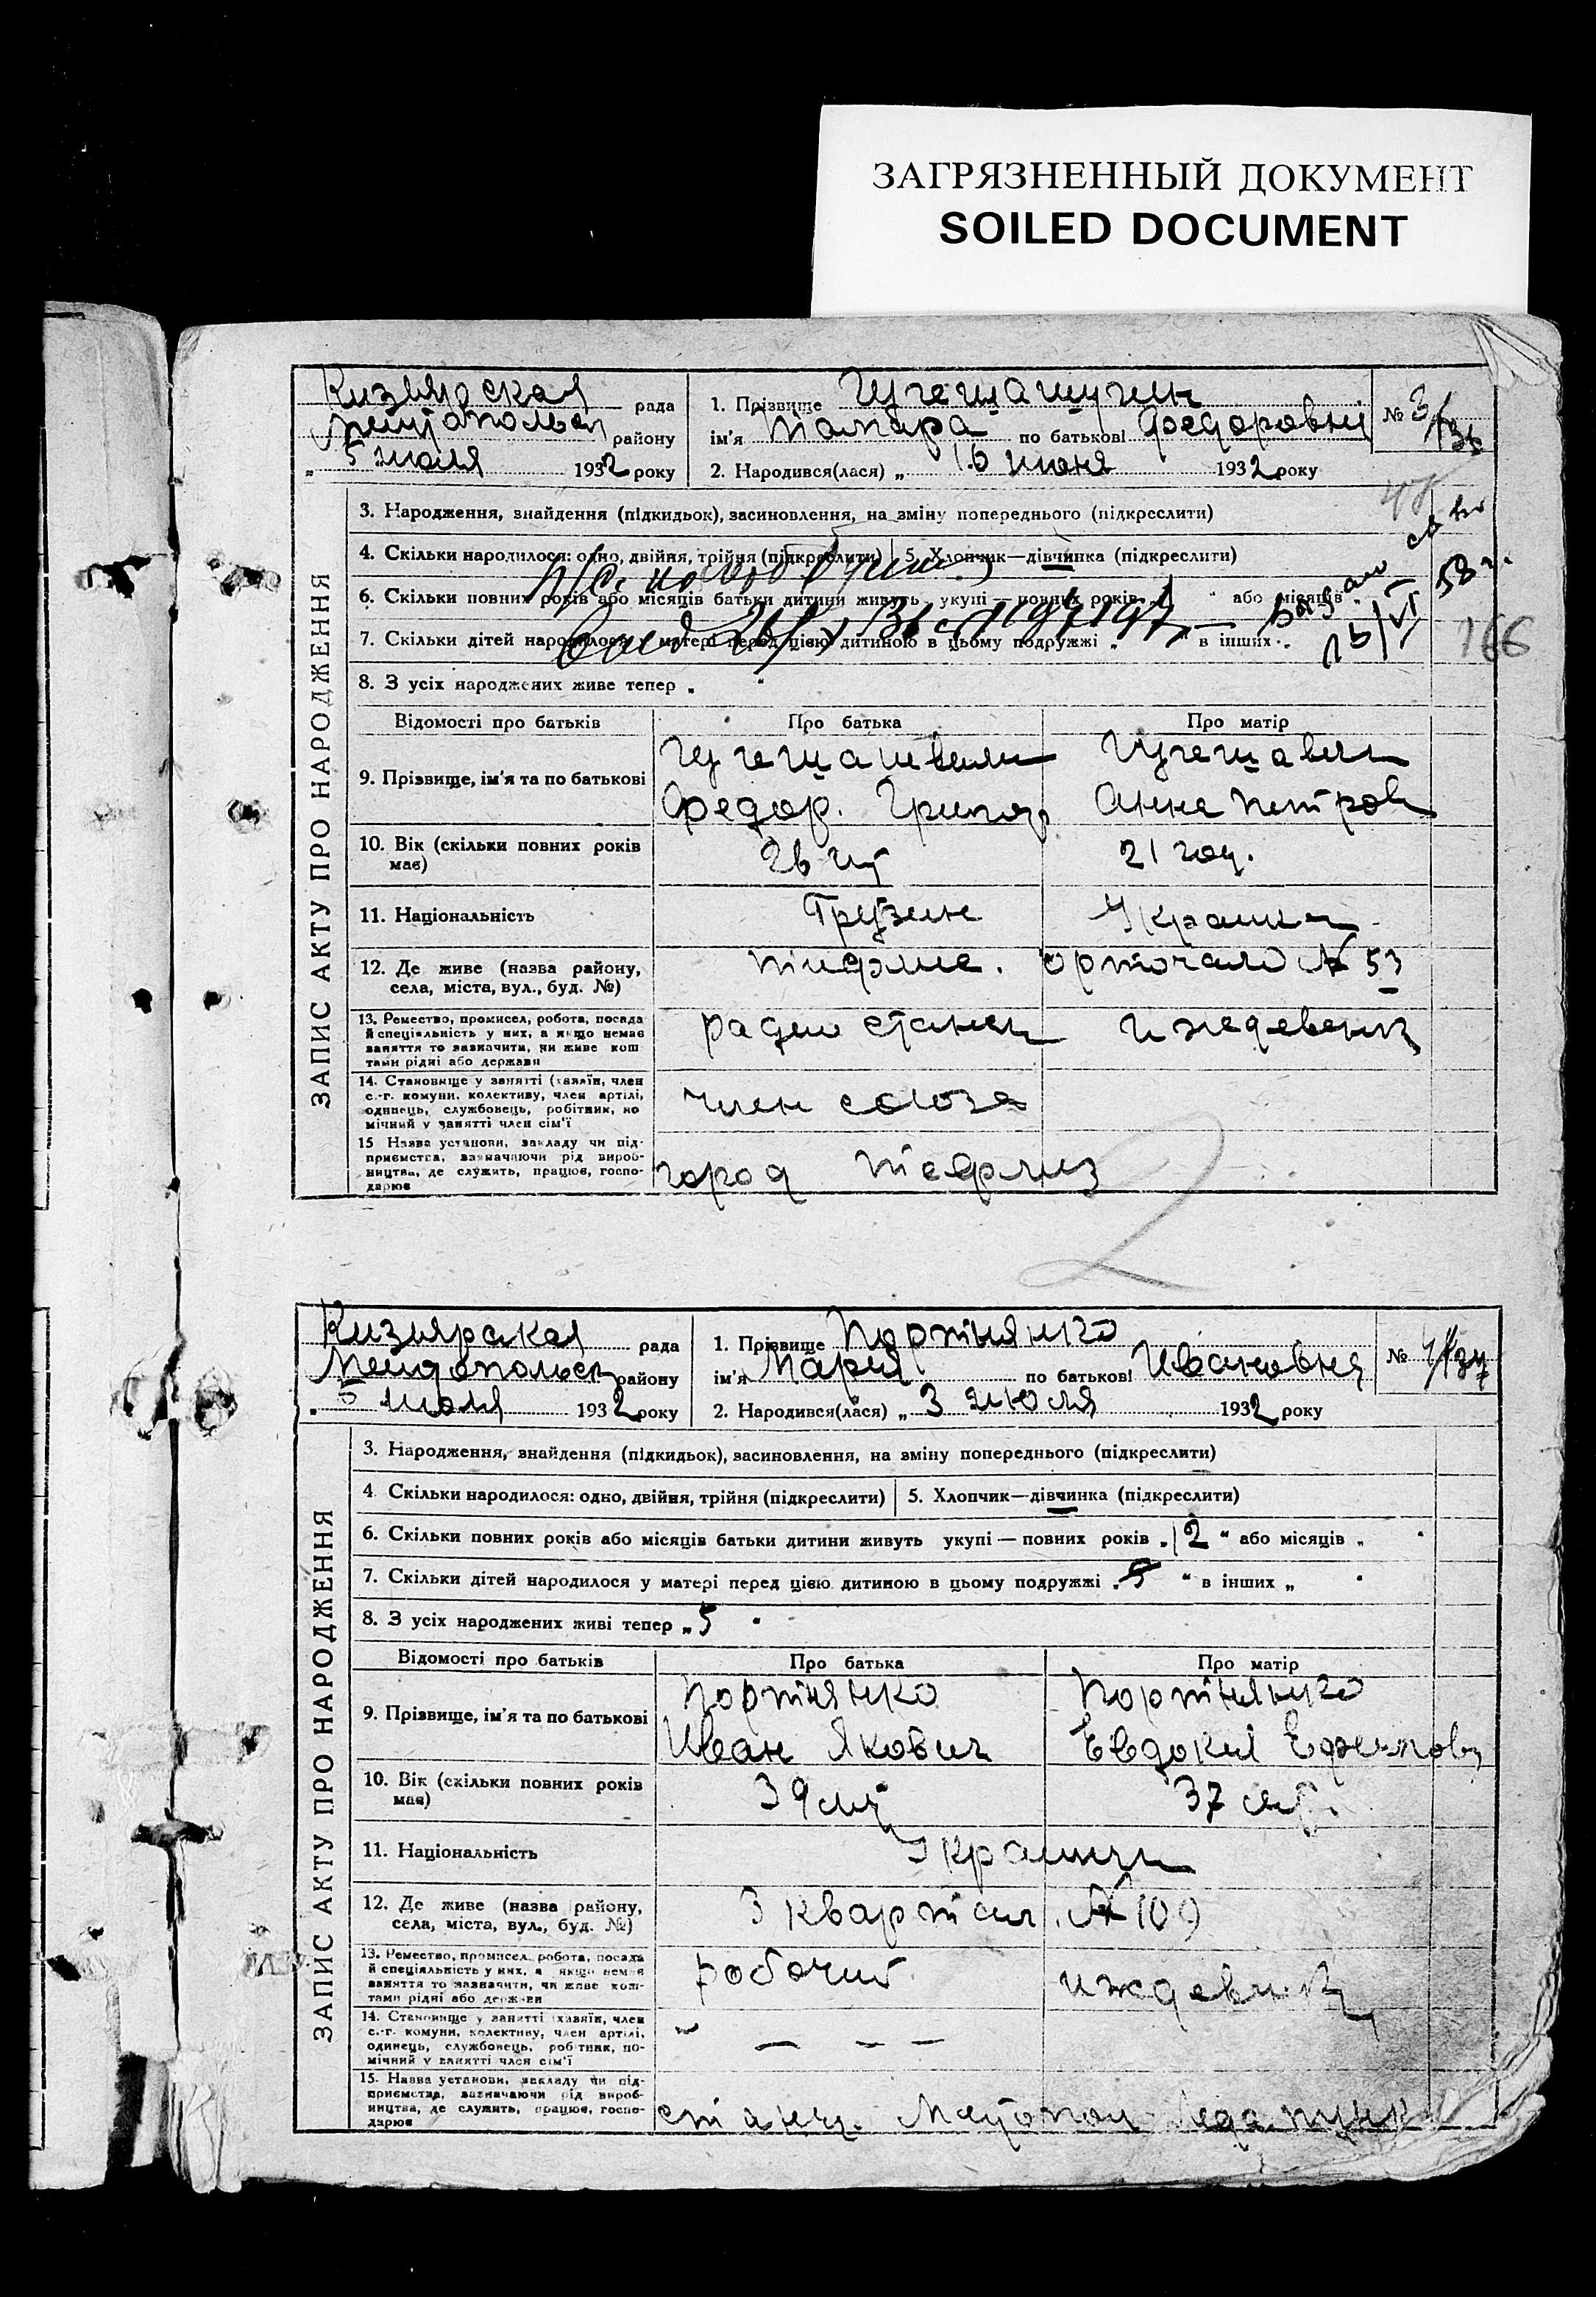 ЗАГРЯЗНЕННЫЙ ДОКУМЕНТ
SOILED DOCUMENT
ЗАПИС АКТУ ПРО НАРОДЖЕННЯ
Кизиярская рада
району
5 июля 1932 року
1. Прізвище
ім'я Тамара по батькові Федоровна
2. Народився(лася) „ 16 июня 1932 року
№ 3/
3. Народження, знайдення (підкидьок), засиновлення, на зміну попереднього (підкреслити)
4. Скільки народилося: одно, двійня, трійня (підкреслити) 5. Хлопчик—дівчинка (підкреслити)
6. Скільки повних років або місяців батьки дитини живуть укупі — повних років 1 " або місяців
7. Скільки дітей народилося у матері перед цією дитиною в цьому подружжі „ " в інших
8. З усіх народжених живе тепер „
58 г.
166
Відомості про батьків Про батька Про матір
9. Прізвище, ім'я та по батькові
Федор. Григор. Анна Петров
10. Вік (скільки повних років має) 21 год.
11. Національність Грузин
12. Де живе (назва району, села, міста, вул., буд. №) Тифлис. Орточало № 53
13. Ремество, промисел, робота, посада й спеціяльність у них, а якщо немає заняття то зазначити, чи живе кош тами рідні або держави
радио станц
14. Становище у занятті (хазяїн, член с.-г. комуни, колективу, член артілі, одинець, службовець, робітник, по мічний у занятті член сім'ї
член союза
15 Назва установи, закладу чи під-приємства, зазначаючи рід вироб-ництва, де служить, працює, госпо-дарює
город Тефлиз
2
ЗАПИС АКТУ ПРО НАРОДЖЕННЯ
Кизиярская рада
району
5 июля 1932 року
1. Прізвище Портнянко
ім'я Мария по батькові Ивановня
2. Народився(лася) „ 3 июля 1932 року
№ 4/37
3. Народження, знайдення (підкидьок), засиновлення, на зміну попереднього (підкреслити)
4. Скільки народилося: одно, двійня, трійня (підкреслити) 5. Хлопчик—дівчинка (підкреслити)
6. Скільки повних років або місяців батьки дитини живуть укупі — повних років „12 " або місяців „
7. Скільки дітей народилося у матері перед цією дитиною в цьому подружжі „ 5 " в інших „
8. З усіх народжених живі тепер „ 5
Відомості про батьків Про батька Про матір
9. Прізвище, ім'я та по батькові
Портнянко Портнянко
Иван Якович Евдокия Ефимов
10. Вік (скільки повних років має) 39 лет 37 лет.
11. Національність
12. Де живе (назва району, села, міста, вул., буд. №) 3 квартал. № 109
13. Ремество, промисел, робота, посада й спеціяльність у них, а якщо немає заняття то зазначити, чи живе кош-тами рідні або держави
робочий
14. Становище у занятті (хазяїн, член с.-г. комуни, колективу, член артілі, одинець, службовець, робітник, по-мічний у занятті член сім'ї
" — — —
15. Назва установи, закладу чи під-приємства, зазначаючи рід вироб-ництва, де служить, працює, госпо-дарює
станц.